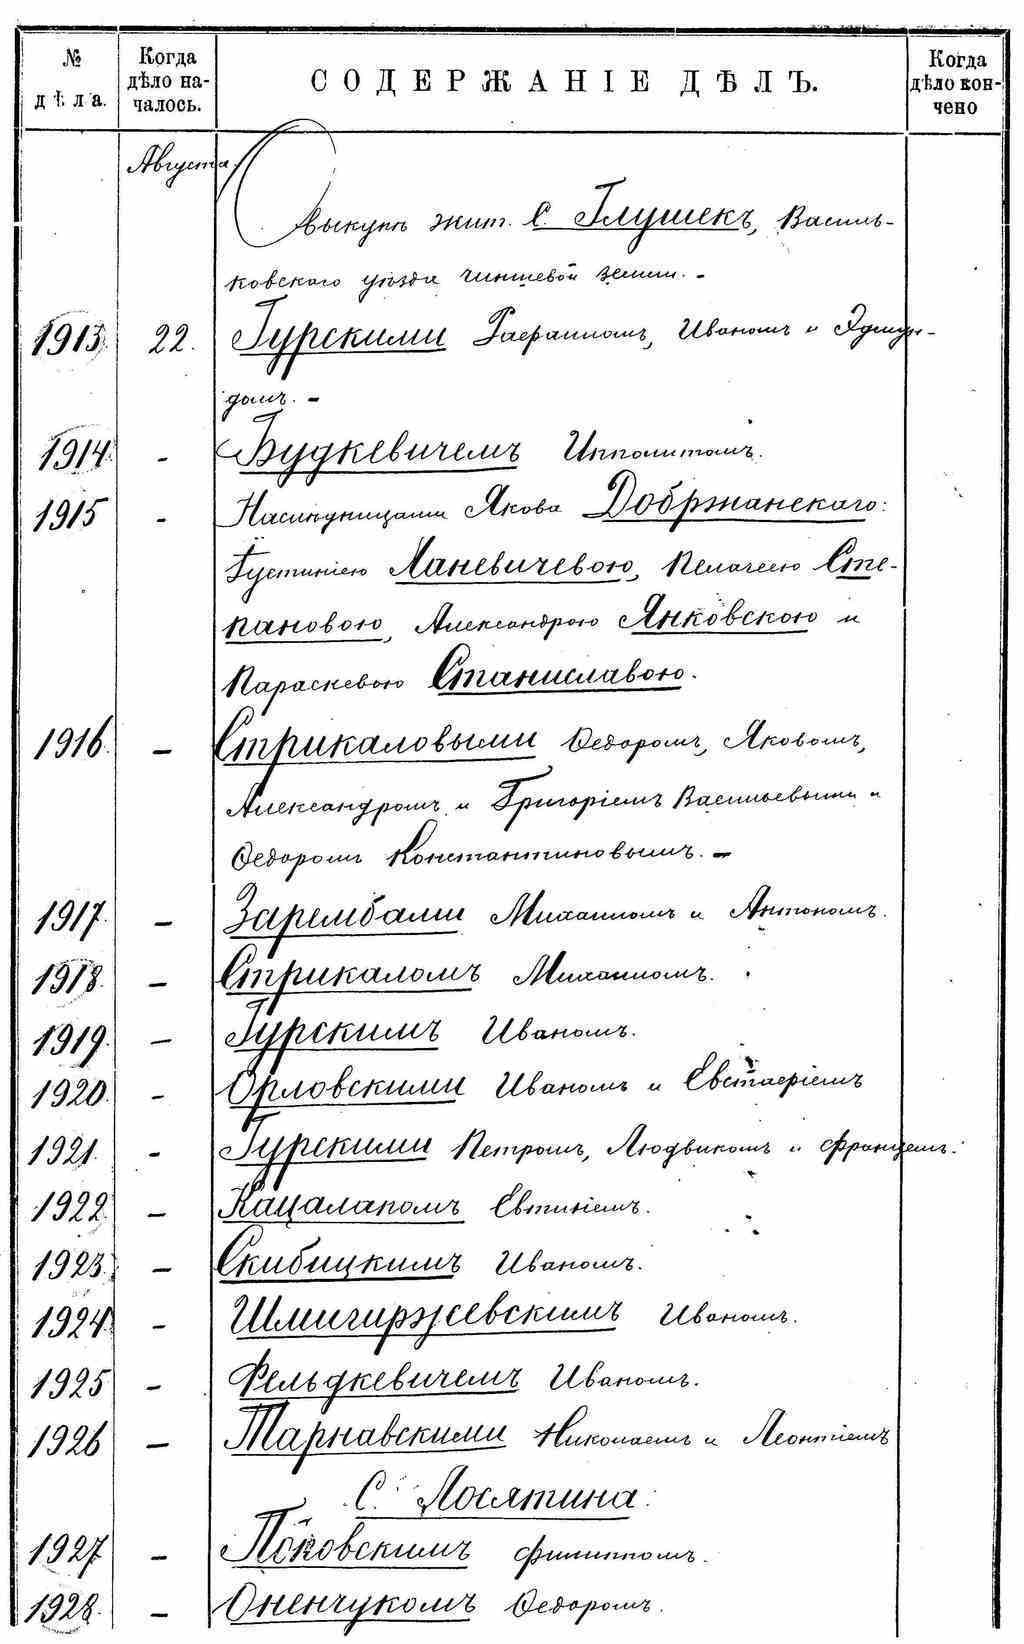 № дѣла. Когда дѣло началось. СОДЕРЖАНІЕ ДѢЛЪ. Когда дѣло кончено
Августа.
Выкупъ жит. с. Глушекъ, Василь-
ковскаго уѣзда чиншевой земли. –
1913. 22. Гурскими Рафаиломъ, Иваномъ и Эдмун-
домъ. –
1914. - Будкевичемъ Ипполитомъ.
1915 - Наслѣдницами Якова Добржанскаго:
Густиніею Ланевичевою, Пелагеею Сте-
пановою, Александрою Янковскою и
Параскевою Станиславою.
1916. – Стрикаловыми Ѳедоромъ, Яковомъ,
Александромъ и Григоріемъ Васильевыми и
Ѳедоромъ Константиновымъ. –
1917. – Зарембами Михаиломъ и Антономъ.
1918. – Стрикаломъ Михаиломъ.
1919. – Гурскимъ Иваномъ.
1920. - Орловскими Иваномъ и Евстафіемъ
1921. - Гурскими Петромъ, Людвикомъ и Францемъ.
1922. – Кацалапомъ Евтихіемъ.
1923. – Скибицкимъ Иваномъ.
1924. - Шмигиржевскимъ Иваномъ.
1925 - Фельдкевичемъ Иваномъ.
1926 – Тарнавскими Николаемъ и Леонтіемъ
С. Лосятина:
1927 – Псковскимъ Филиппомъ.
1928. – Оненчукомъ Ѳедоромъ.